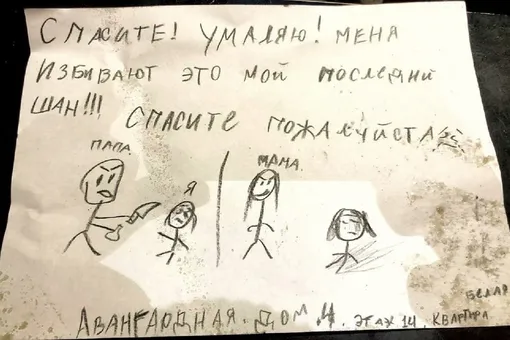 СПАСИТЕ! УМАЛЯЮ! МЕНЯ
ИЗБИВАЮТ ЭТО МОЙ ПОСЛЕДНИ
ШАН!!! СПАСИТЕ ПОЖАЛУЙСТА
ПАПА.
Я
МАМА.
АВАНГАРДНАЯ. ДОМ 4. ЭТАЖ 14. КВАРТИРА
БЕЛАЯ